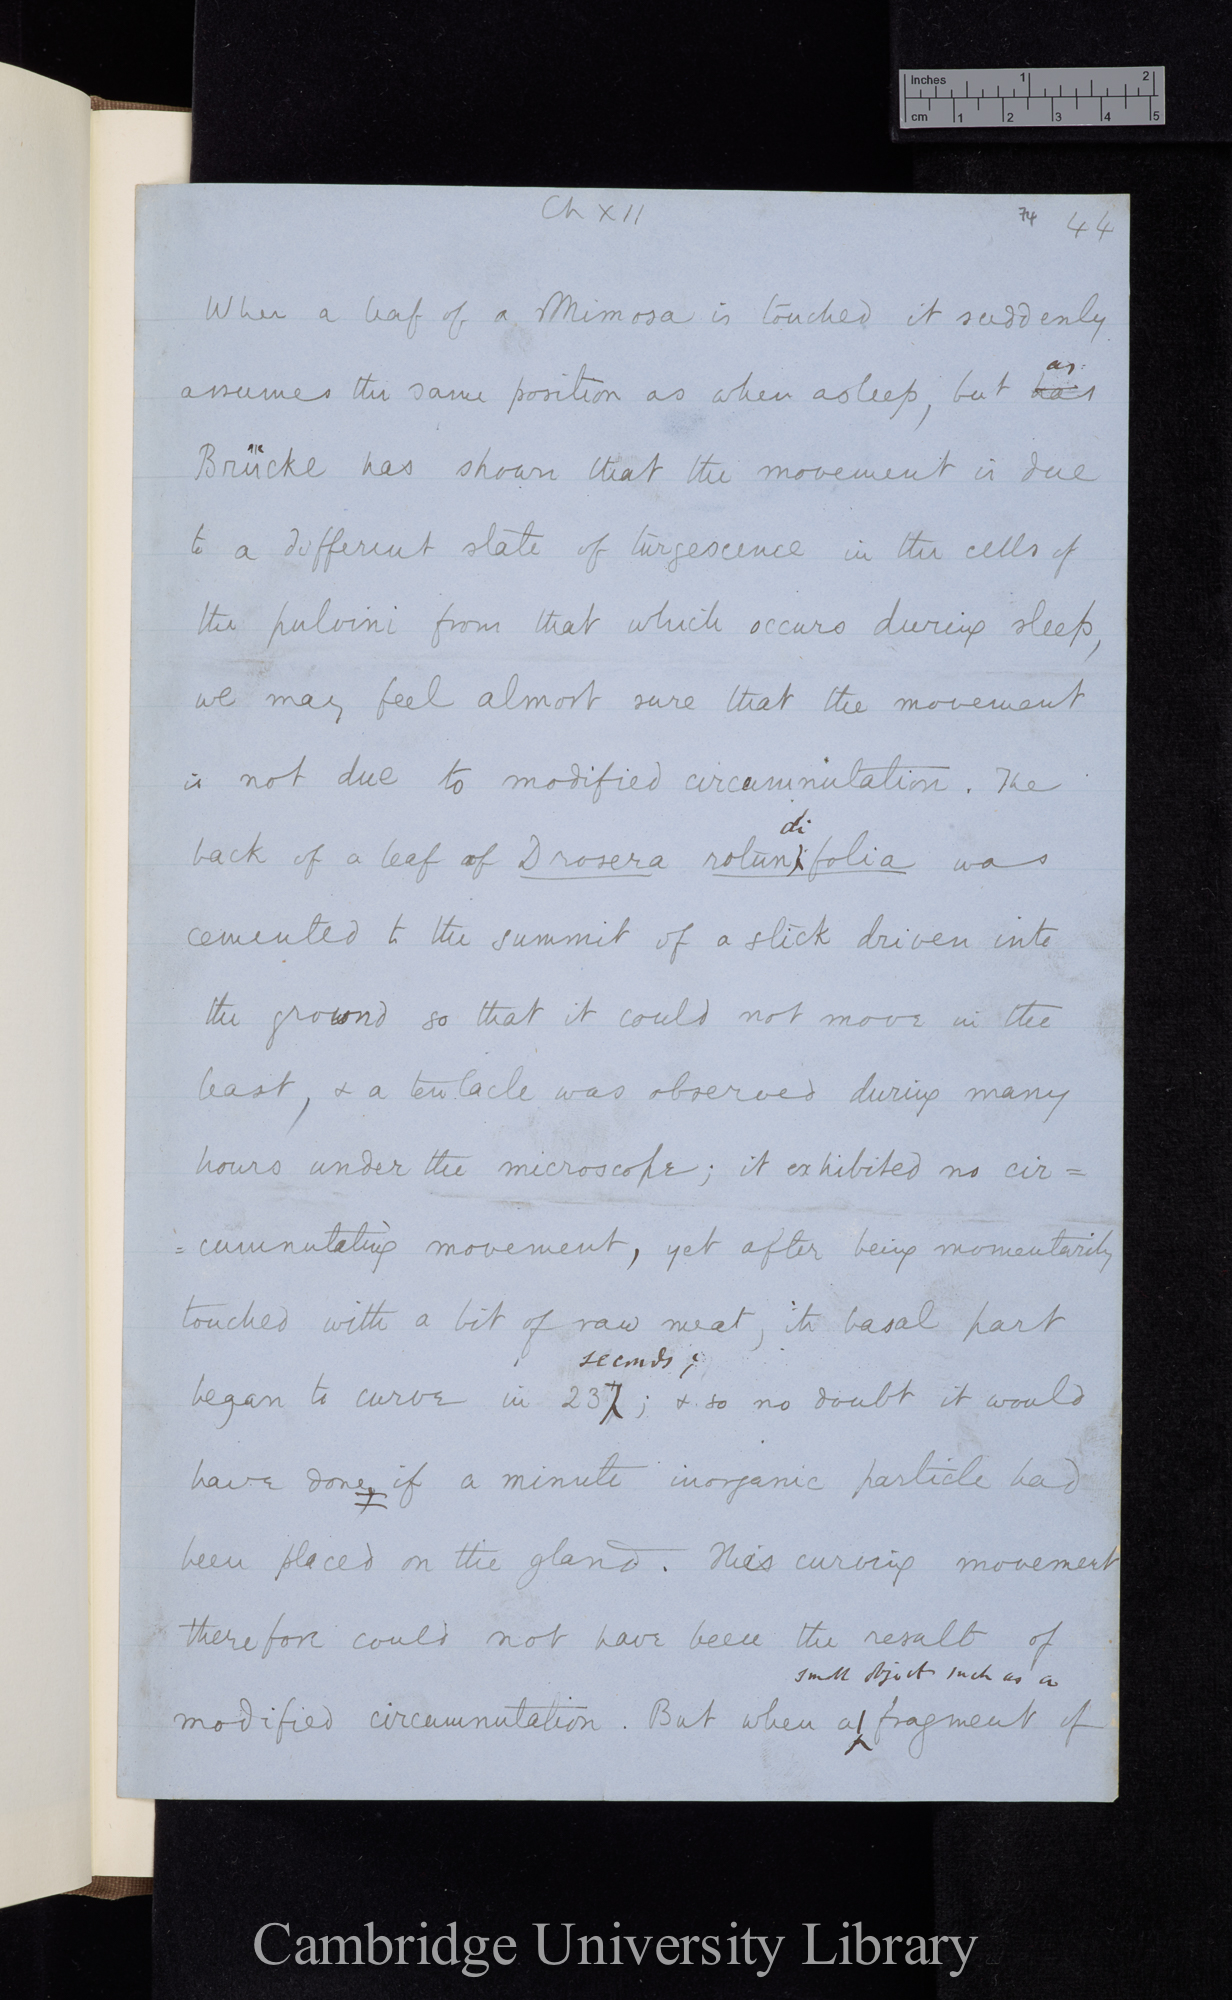 Inches 1 2
cm 1 2 3 4 5
Ch XII
74 44
When a leaf of a Mimosa is touched it suddenly
as
assumes the same position as when asleep, but has
Brücke has shown that the movement is due
to a different state of turgescence in the cells of
the pulvini from that which occurs during sleep,
we may feel almost sure that the movement
is not due to modified circumnutation. The
di
back of a leaf of Drosera rotunifolia was
cemented to the summit of a stick driven into
the ground so that it could not move in the
least, & a tentacle was observed during many
hours under the microscope; it exhibited no cir=
=cumnutating movement, yet after being momentarily
touched with a bit of raw meat, its basal part
seconds;
began to curve in 23; & so no doubt it would
have done, if a minute inorganic particle had
been placed on the gland. This curving movement
therefore could not have been the result of
small object such as a
modified circumnutation. But when a fragment of
Cambridge University Library